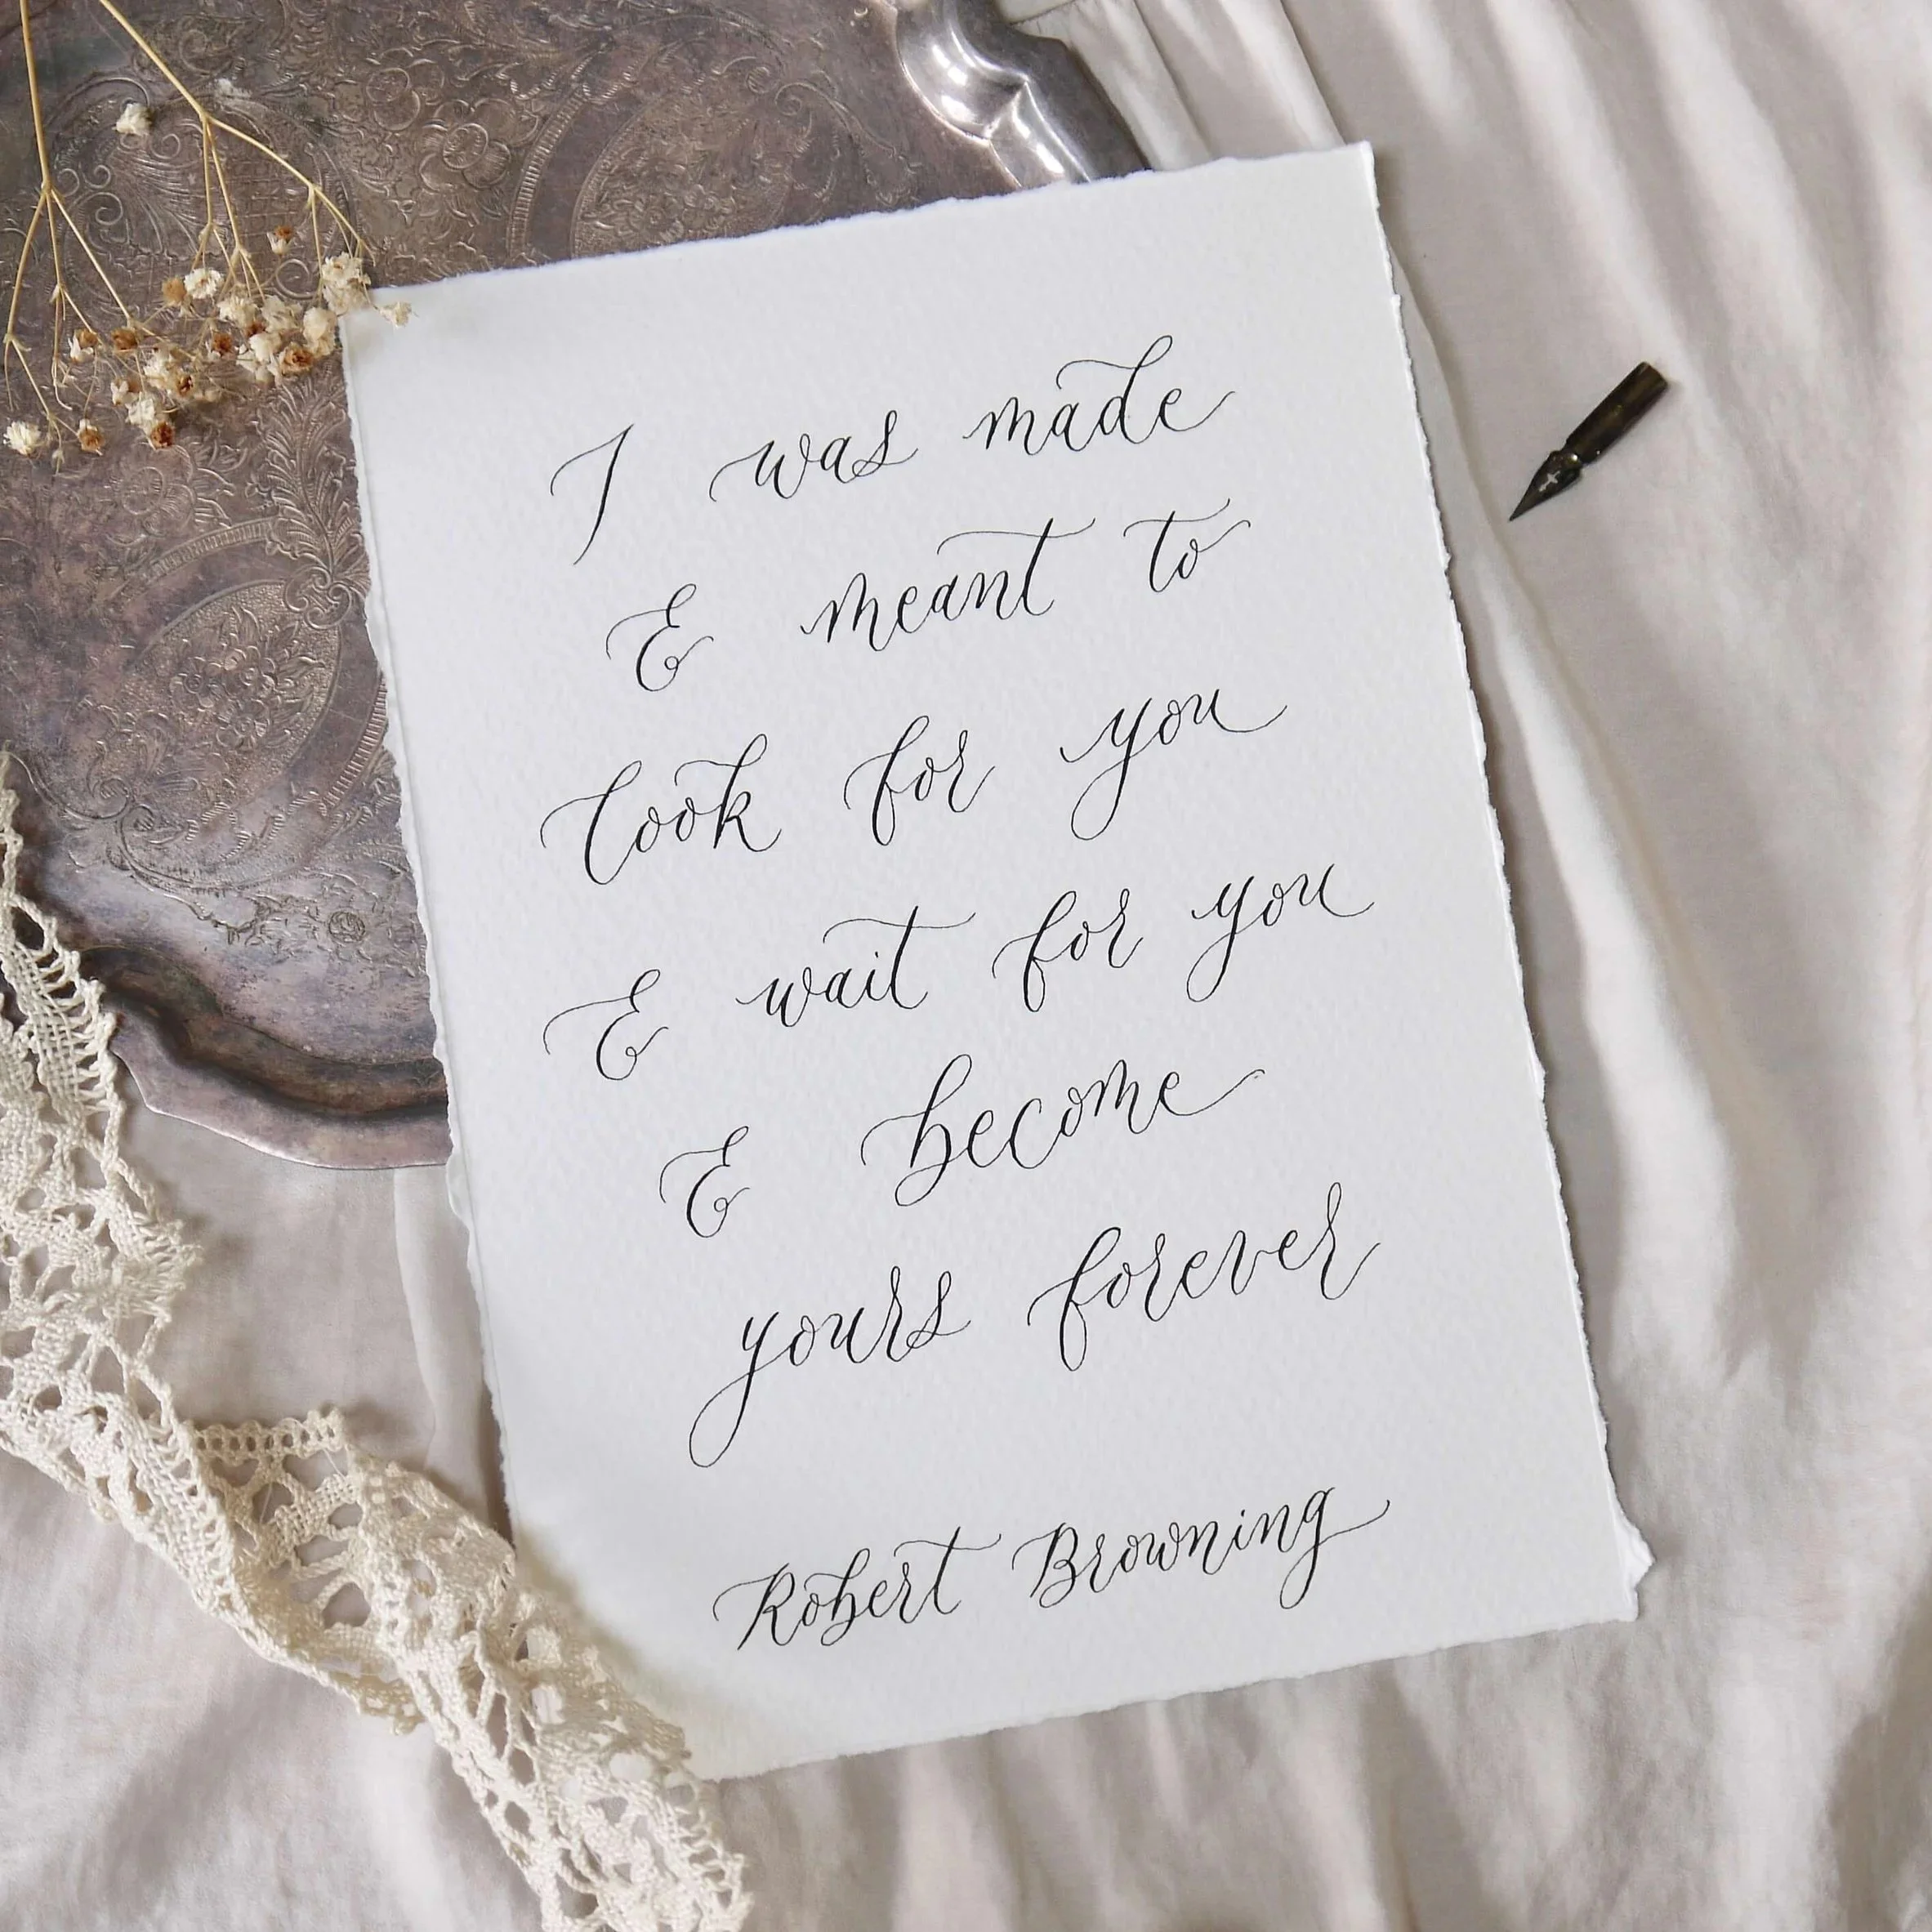 I was made
& meant to
look for you
& wait for you
& become
yours forever
Robert Browning